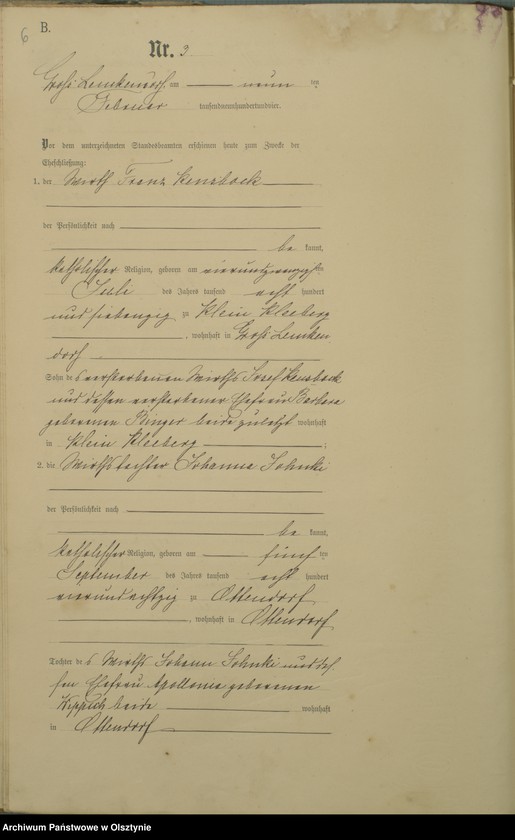 6
B.
Nr. 3
Groß Lemkendorf, am neun ten
Februar tausendneunhundertundvier.
Vor dem unterzeichneten Standesbeamten erschienen heute zum Zwecke der
Eheschließung:
1. der Wirth Franz
der Persönlichkeit nach
be kannt,
katholischer Religion, geboren am vierundzwanzigsten
Juli des Jahres tausend acht hundert
und siebenzig zu Klein Kleeberg
, wohnhaft in Groß Lemken
dorf
Sohn des verstorbenen Wirths Josef
und dessen verstorbener Ehefrau Barbara
geborenen beide zuletzt wohnhaft
in Klein Kleeberg ;
2. die Wirthstochter Johanna
der Persönlichkeit nach
be kannt,
katholischer Religion, geboren am fünf ten
September des Jahres tausend acht hundert
vierundachtzig zu Ottendorf
, wohnhaft in Ottendorf
Tochter des Wirths Johann und des
sen Ehefrau Apollonia geborenen
beide wohnhaft
in Ottendorf
Archiwum Państwowe w Olsztynie